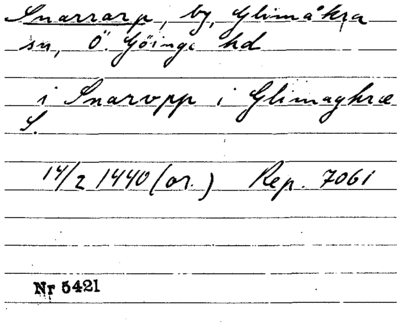 Snararp, by, Glimåkra
sn, Ö. Göinge hd
i Snaropp i Glimaghræ
S.
14/2 1440 (or.) Rep. 7061
Nr 5421